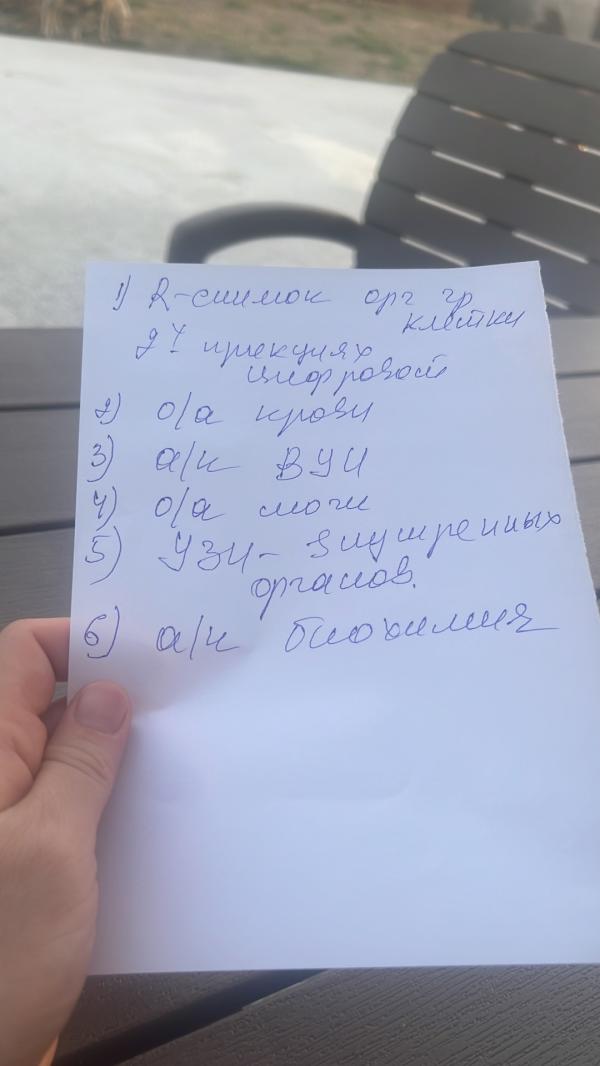 1) R-снимок орг гр
клетки
2х проекциях
цифровой
2) о/а крови
3) а/к ВУИ
4) о/а мочи
5) УЗИ - внутренных
органов.
6) а/к биохимия